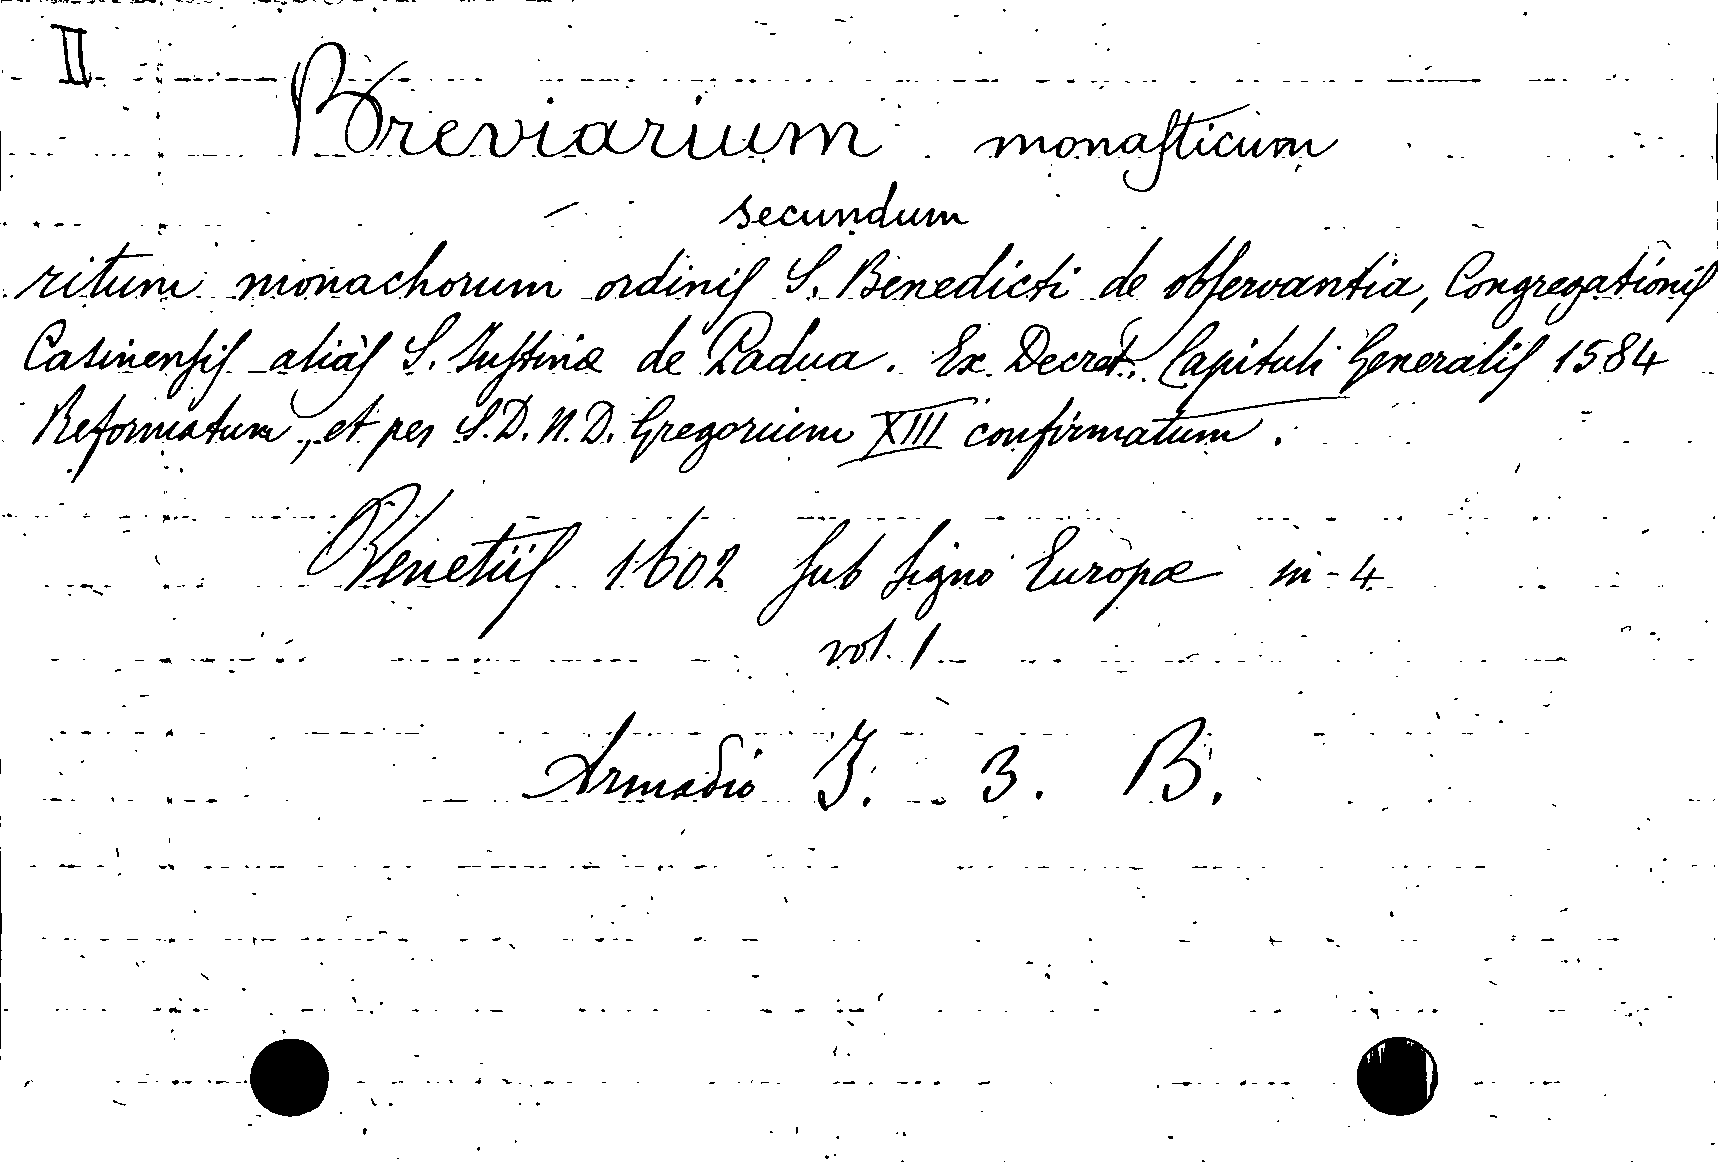 II
Breviarium monaſticum
secundum
ritum monachorum ordiniſ S. Benedicti de obſervantia, Congregationiſ
Casinenſiſ aliàſ S. Juſtinæ de Padua. Ex Decret. Capituli Generaliſ 1584
Reformatum, et per S. D. N. D. Gregorium XIII confirmatum.
Venetiiſ 1602 ſub ſigno Europæ in-4
vol. 1
Armadio I. 3. B.